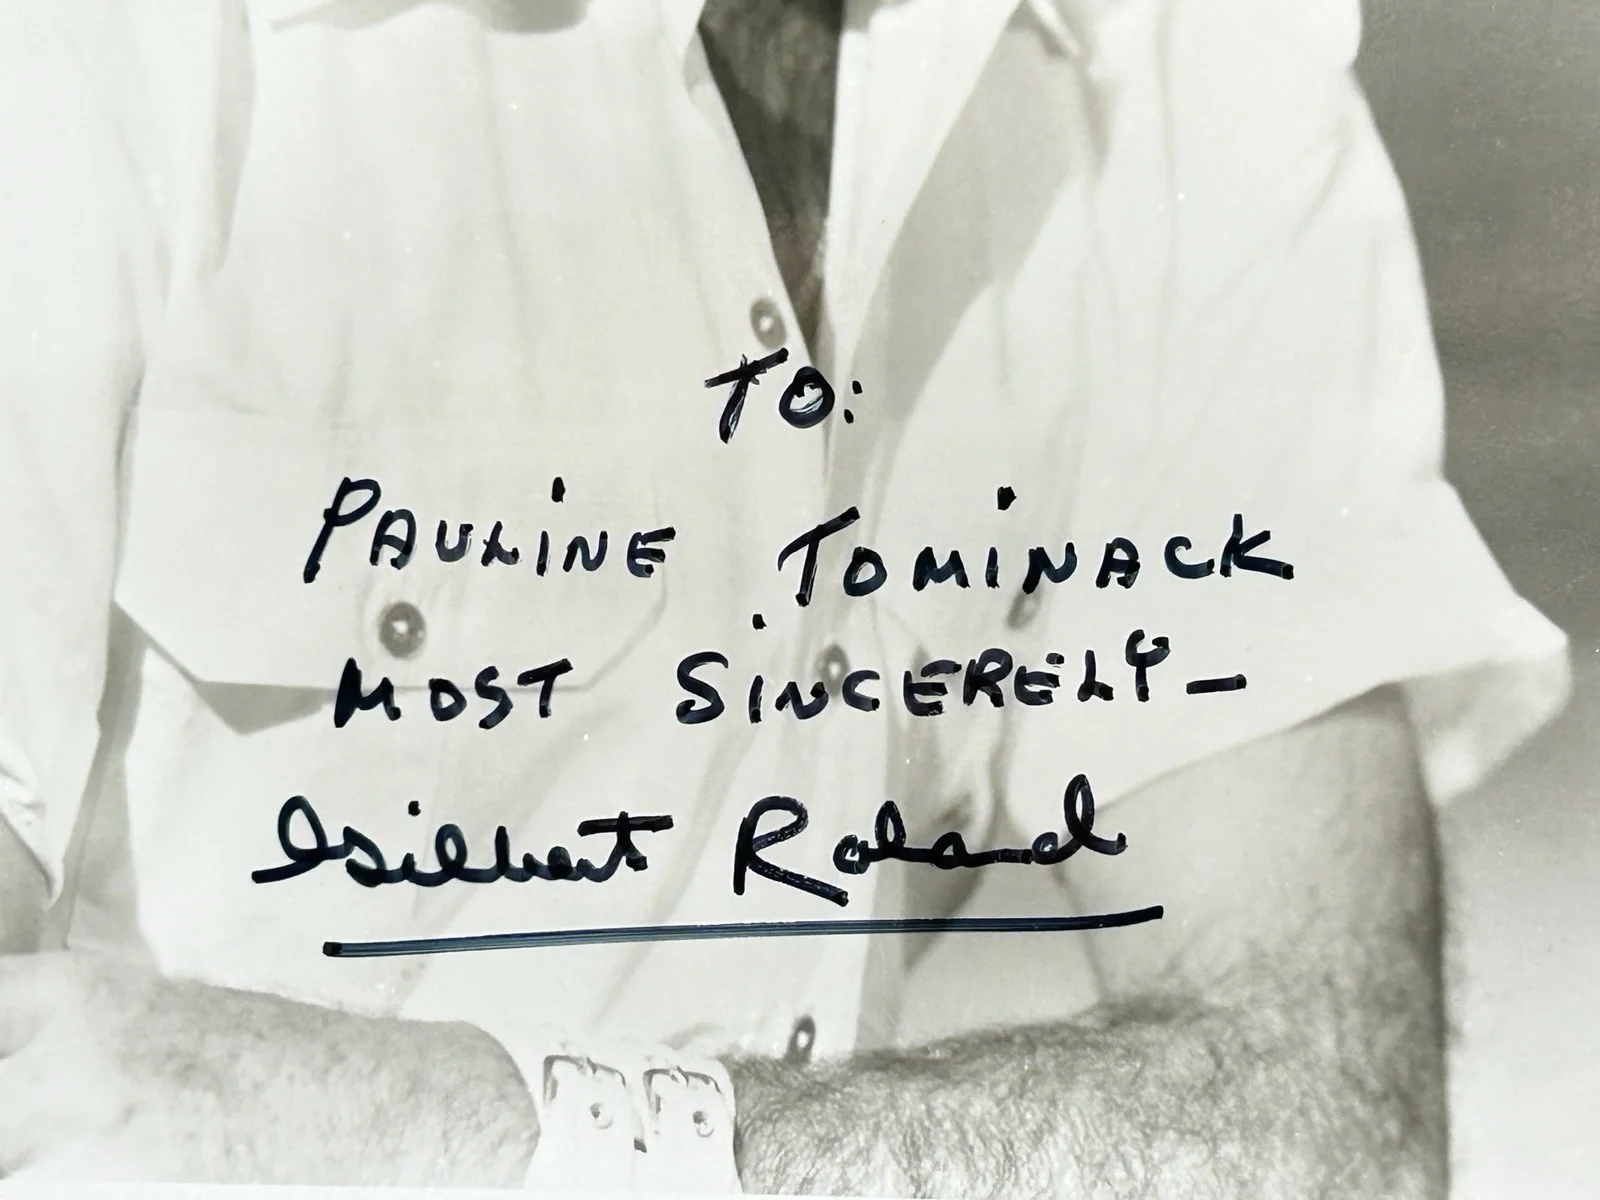 TO:
PAULiNE TOMiNACK
MOST SiNCERELY-
Gilbert Roland